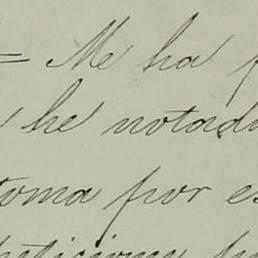 = Me ha
he notado
toma por es